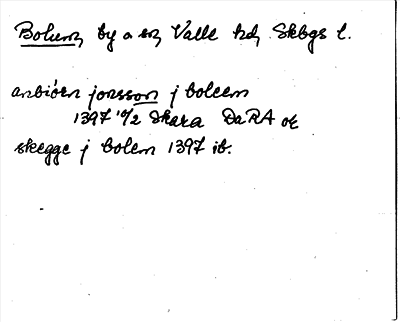 Bolum, by a sn, Valle hd, Skbgs l.
anbiørn jonsson j boleem
1397 10/2 Skara DaRA oc
skegge j bolem 1397 ib.